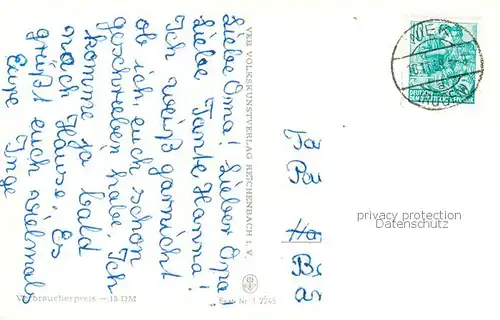 Liebe Oma! Lieber Opa!
Liebe Tante Hanna!
Ich weiß garnicht
ob ich euch schon
geschrieben habe. Ich
komme ja bald
nach Hause. Es
grüßt euch vielmals
Eure Inge
VEB VOLKSKUNSTVERLAG REICHENBACH i. V.
Verbraucherpreis —.15 DM
Best. Nr. I 7245
privacy protection
Datenschutz